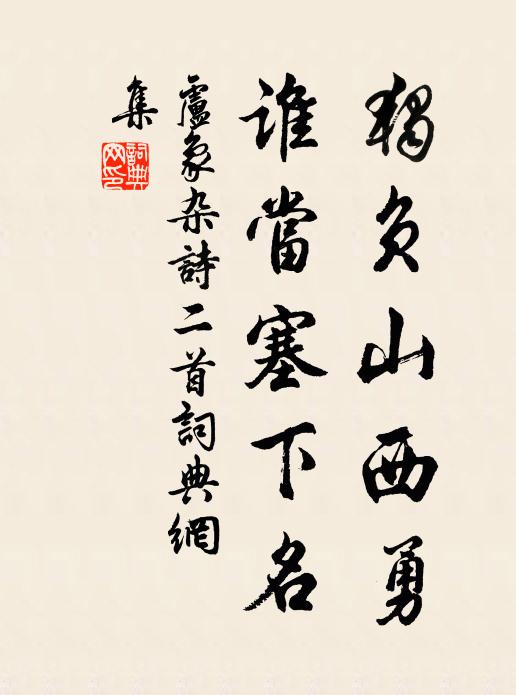 獨負山西勇
誰當塞下名
盧象杂詩二首詞典網
集
詞典
网印